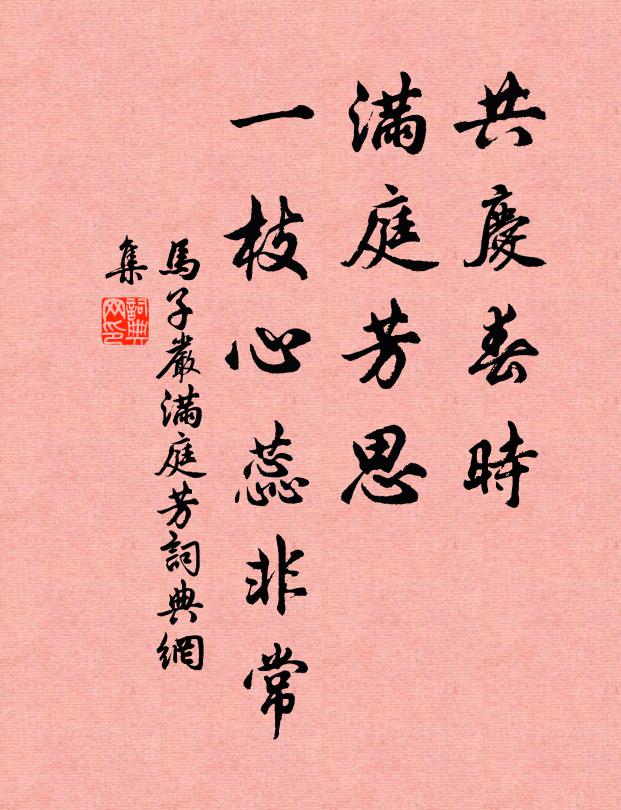 共慶春時
滿庭芳思
一枝心蕊非常
馬子嚴滿庭芳詞典網
集
詞典
网印